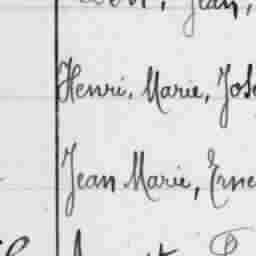 Jean,
Henri, Marie, Jos
Jean Marie, Erne